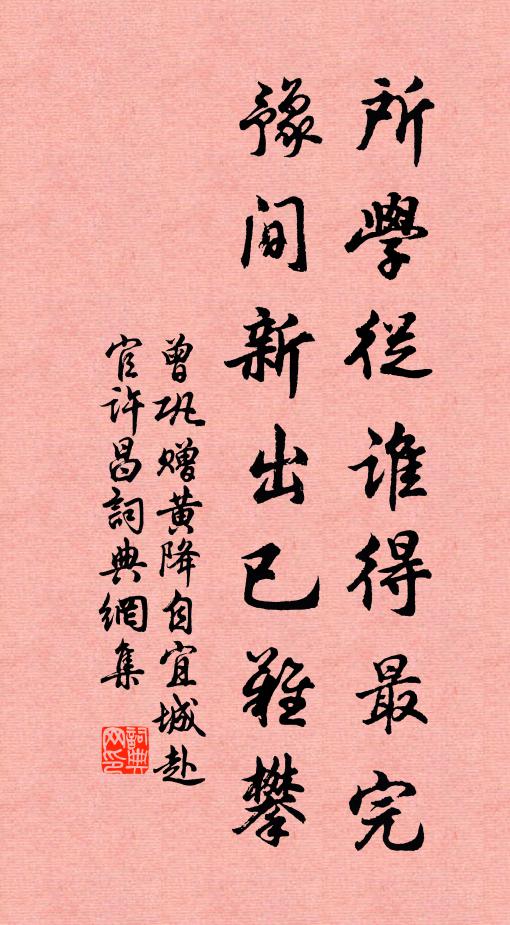 所學從誰得最完
豫間新出已難攀
曾巩赠黄降自宜城赴
官许昌詞典網集
詞典
网印